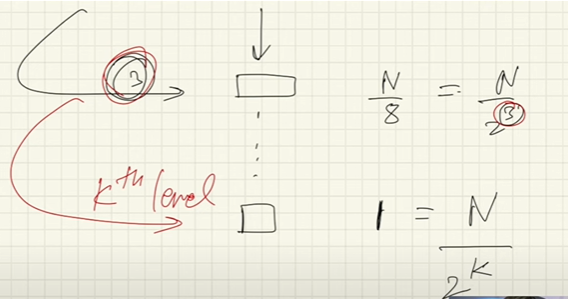 3
N/8 = N/2^3
Kth level
1 = N/2^K